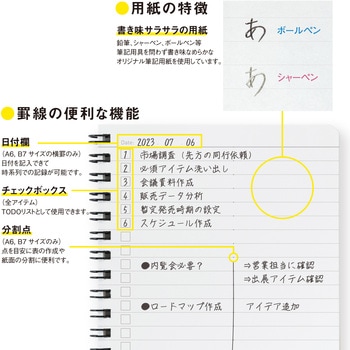 ●用紙の特徴
書き味サラサラの用紙
鉛筆、シャーペン、ボールペン等
筆記用具を問わず書き味なめらかな
オリジナル筆記用紙を使用しています。
あ ボールペン
あ シャーペン
●罫線の便利な機能
日付欄
(A6、B7 サイズの横罫のみ)
日付を記入できて
時系列での記録が可能です。
チェックボックス
(全アイテム)
TODOリストとして使用できます。
分割点
(A6、B7 サイズのみ)
点を目安に表の作成や
紙面の分割に便利です。
Date 2023 07 06
1 市場調査（先方の同行依頼）
2 必須アイテム洗い出し
3 会議資料作成
4 販売データ分析
5 暫定発売時期の設定
6 スケジュール作成
●内覧会必要？ ⇒営業担当に確認
⇒出展アイテム確認
●ロードマップ作成 アイデア追加